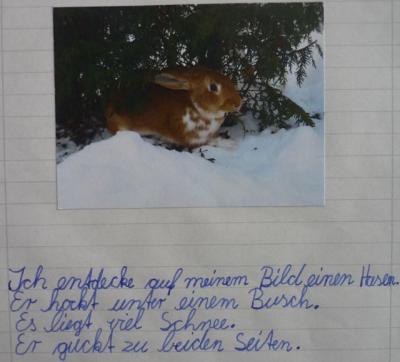 Ich entdecke auf meinem Bild einen Hasen.
Er hockt unter einem Busch.
Es liegt viel Schnee.
Er guckt zu beiden Seiten.